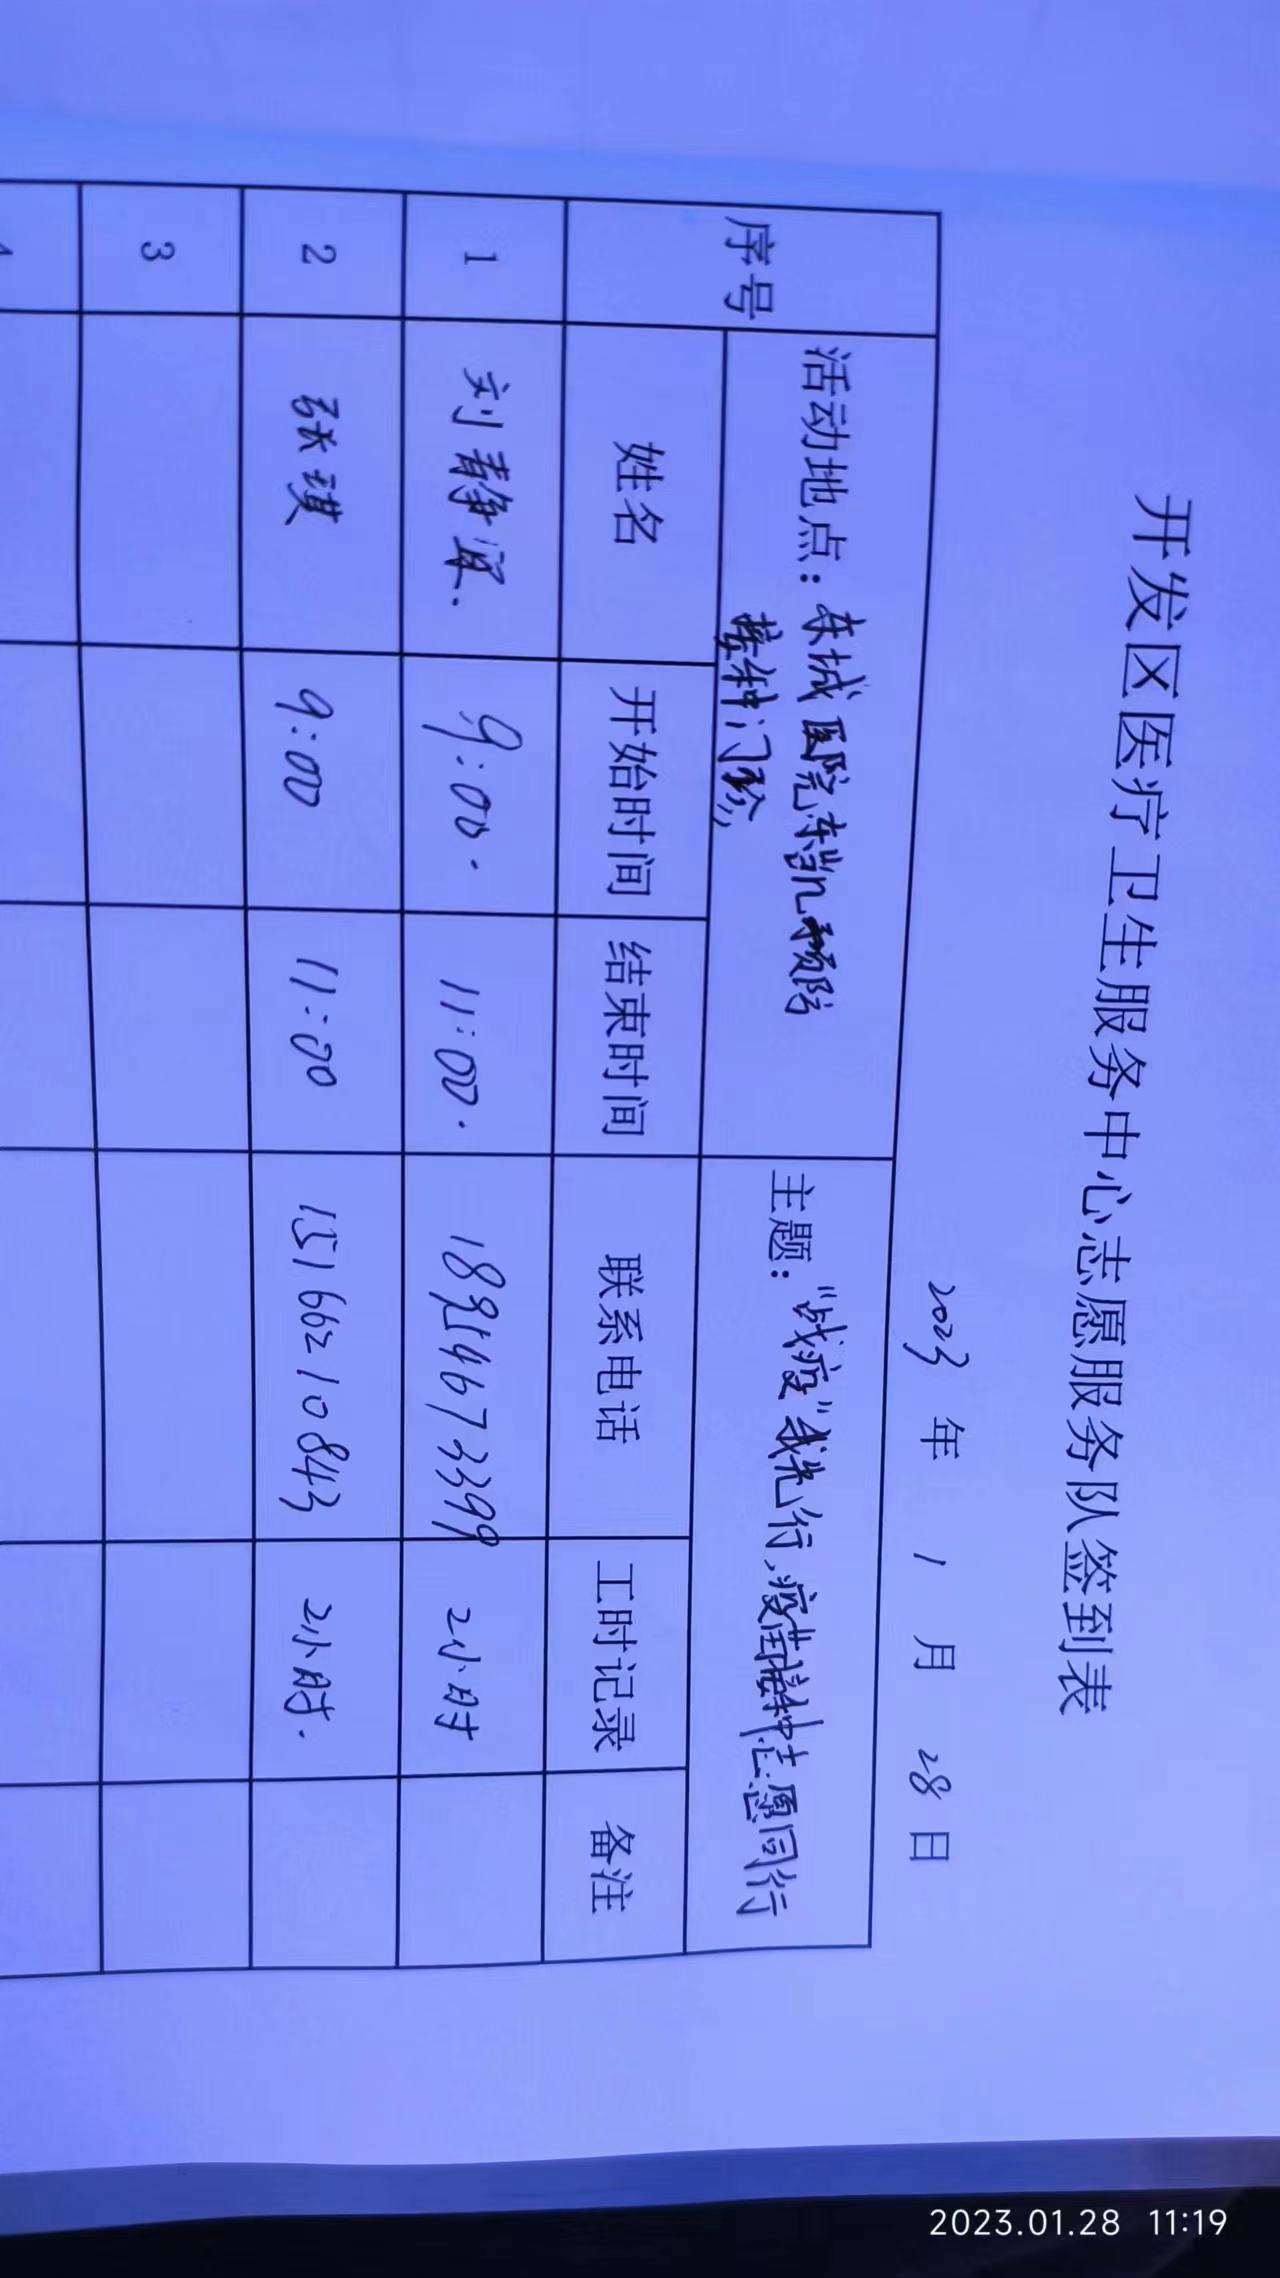 开发区医疗卫生服务中心志愿服务队签到表
2023 年 1 月 28 日
序号 活动地点：东城医院东凯预防 主题："战疫"我先行，疫苗接种志愿同行
接种门诊
姓名 开始时间 结束时间 联系电话 工时记录 备注
1 刘静 9:00. 11:00. 2小时
2 张琪 9:00 11:00 15166210843 2小时.
3
2023.01.28 11:19